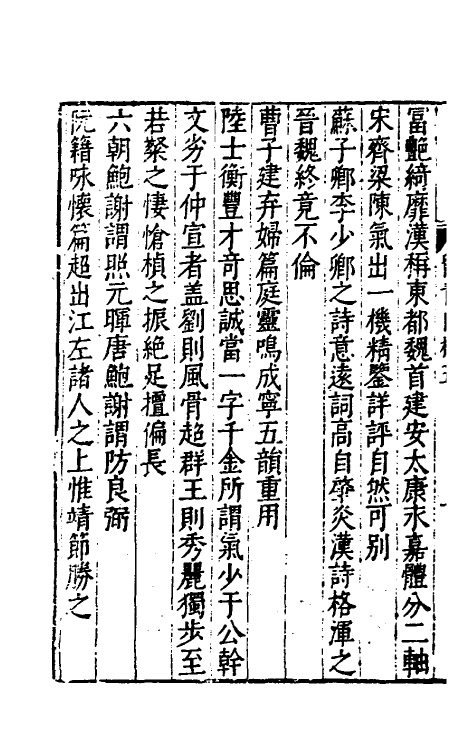 富艷綺靡漢稱東都魏首建安太康永嘉體分二軸
宋齊梁陳氣出一機精鑒詳評自然可别
蘇子卿李少卿之詩意遠詞高自肇炎漢詩格渾之
晉魏終竟不倫
曹子建弃婦篇庭靈鳴成寧五韻重用
陸士衡豐才竒思誠當一字千金所謂氣少于公幹
文劣于仲宣者盖劉則風骨超群王則秀麗獨步至
若粲之悽愴楨之振絶足擅偏長
六朝鮑謝謂照元暉唐鮑謝謂防良弼
阮籍咏懷篇超出江左諸人之上惟靖節勝之